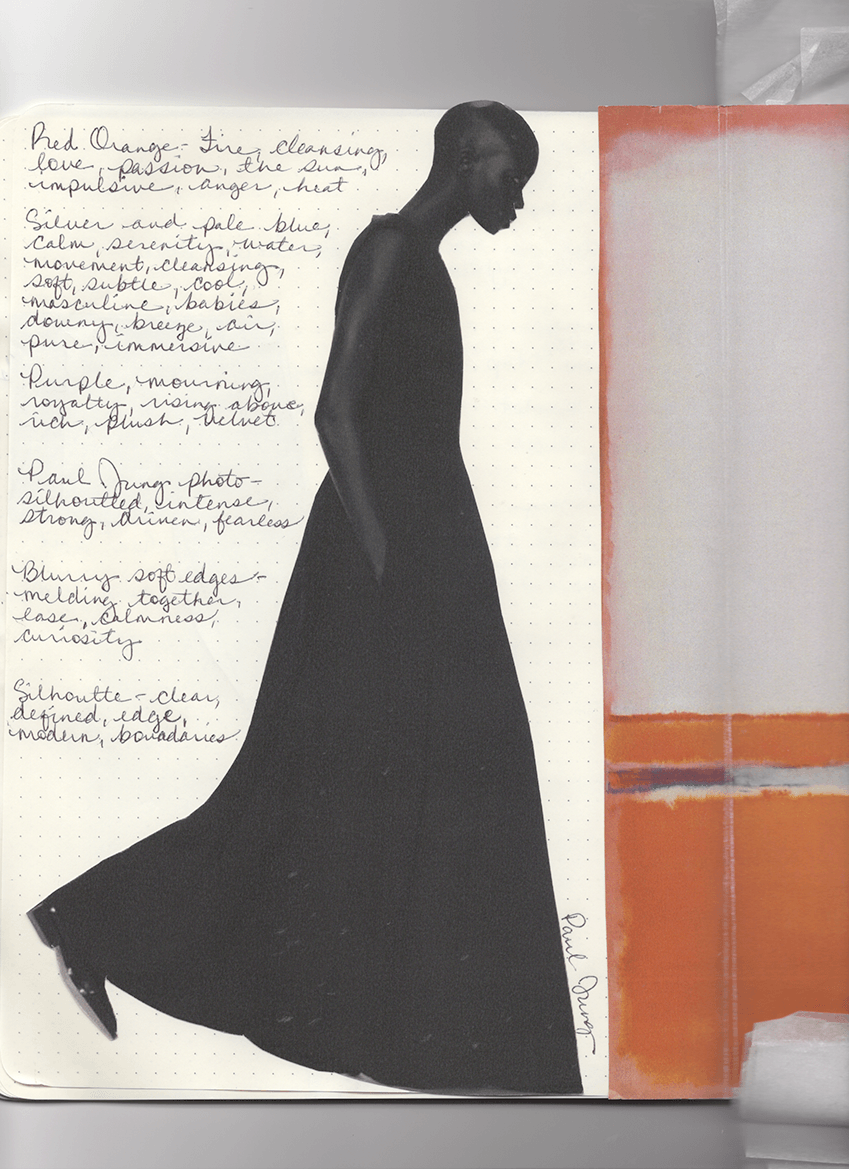 Red Orange - Fire, cleansing,
love, passion, the sun,
impulsive, anger, heat
Silver and pale blue,
calm, serenity, water,
movement, cleansing,
soft, subtle, cool,
masculine, babies,
downy, breeze, air,
pure, immersive
Purple, mourning,
royalty, rising above,
rich, plush, velvet
Paul Jung photo-
silhoutted, intense,
strong, driven, fearless
Blurry soft edges -
melding together,
ease, calmness,
curiosity
Silhoutte - clear,
defined, edge,
modern, bouadaries
Paul Jung